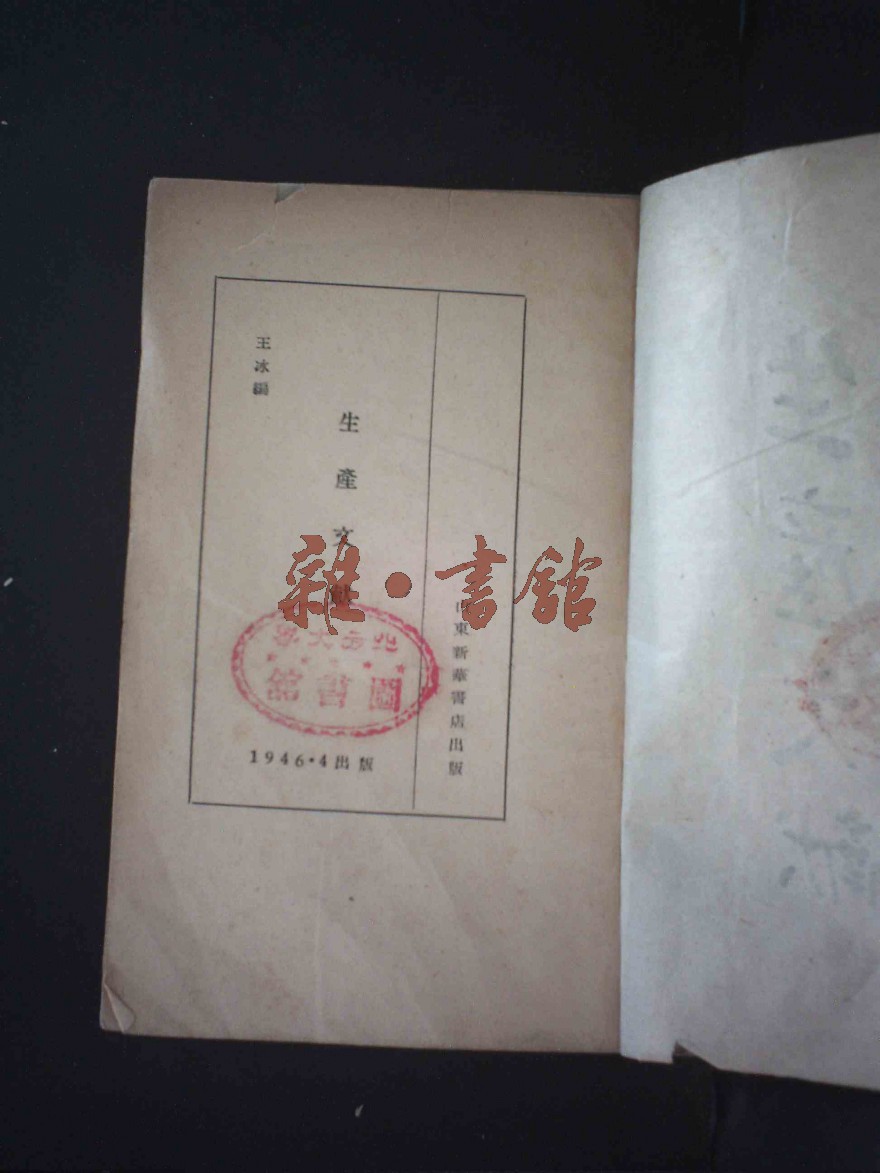 山東新華書店出版
生產文獻
王冰編
1946·4出版
北方大學
圖書館
雜·書館